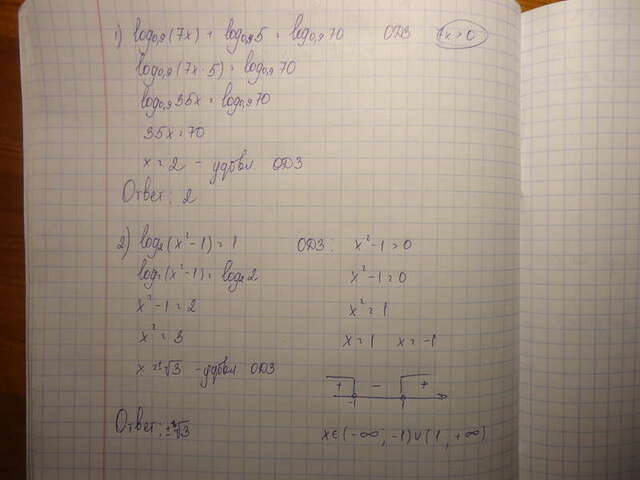 1) log₀,₉(7x) + log₀,₉5 = log₀,₉70 ОДЗ 7x > 0
log₀,₉(7x·5) = log₀,₉70
log₀,₉35x = log₀,₉70
35x = 70
x = 2 - удовл. ОДЗ
Ответ: 2
2) log₂(x²-1) = 1 ОДЗ: x²-1>0
log₂(x²-1) = log₂2 x²-1=0
x²-1=2 x²=1
x²=3 x=1 x=-1
x=±√3 - удовл. ОДЗ
+ - +
-1 1
Ответ: ±√3 x∈(-∞, -1)∪(1, +∞)